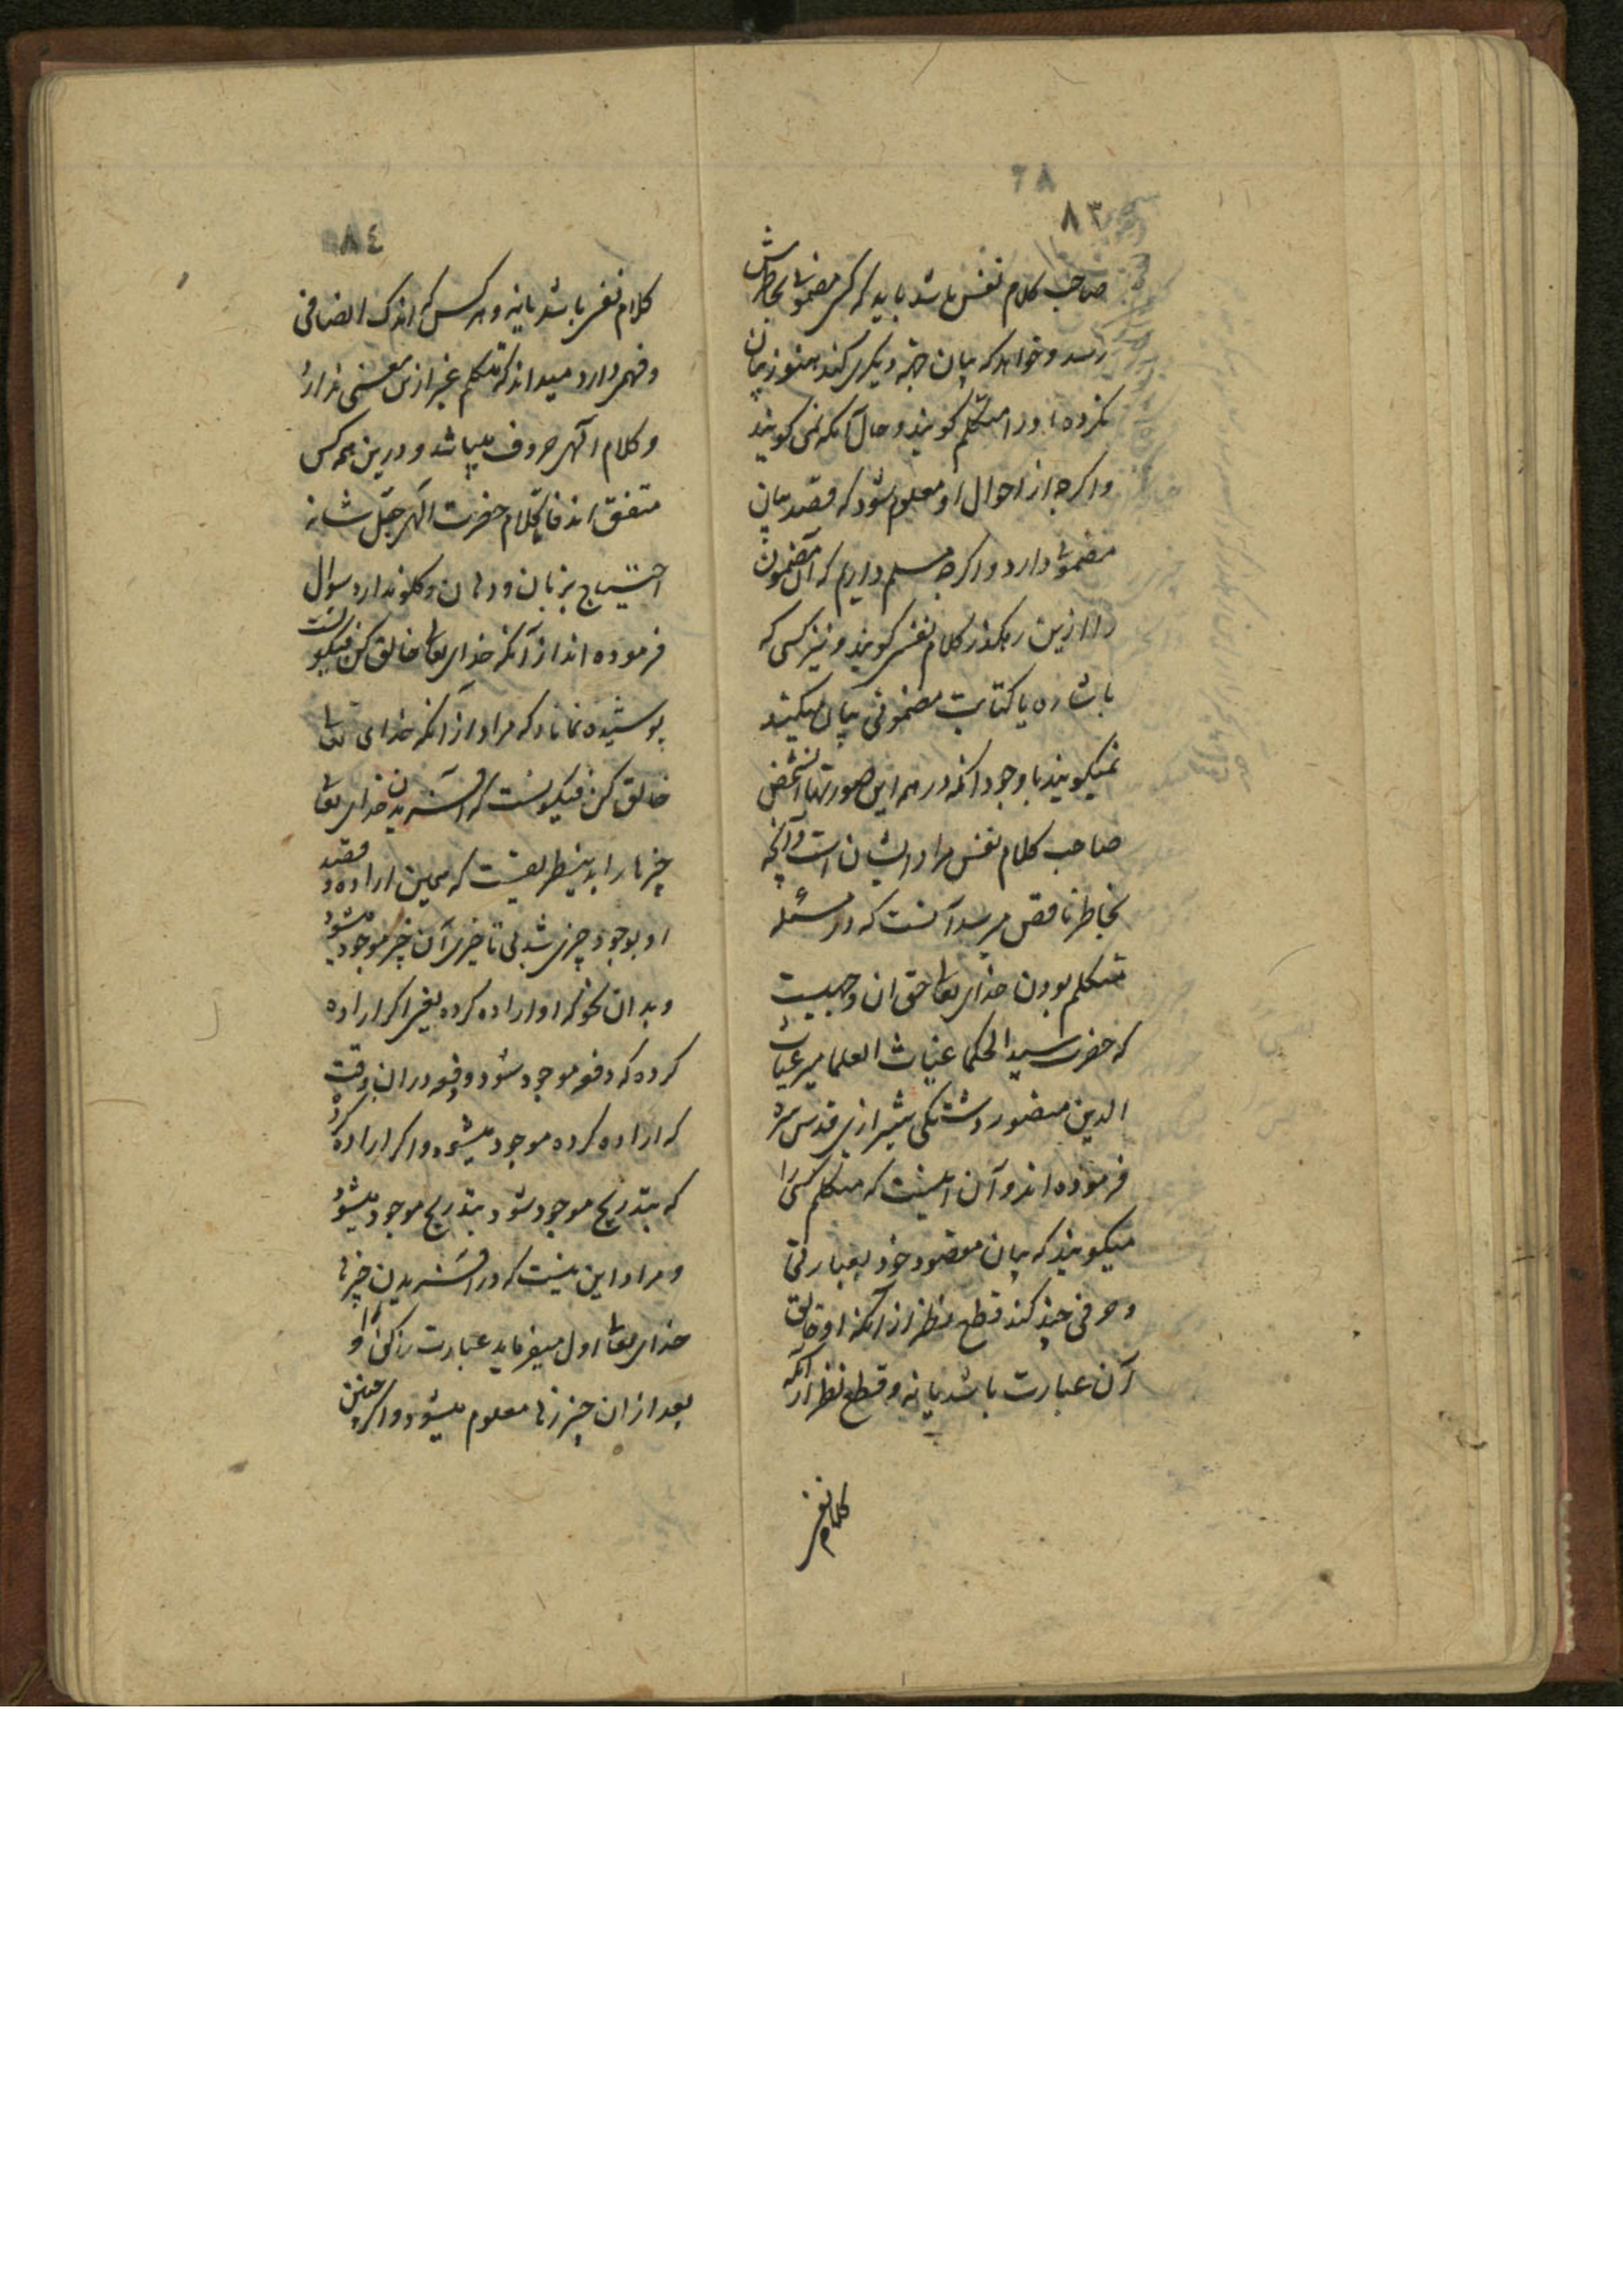 ٧٨
٨٣
صاحب کلام نفس باشد باید که کسی مضمونی بخاطرش
رسد و خواهد که بیان جهة دیگری کند هنوز بیان
نکرده او را متکلم گویند و حال آنکه نمی گویند
و اگرچه از احوال او معلوم شود که قصد بیان
مضمونی دارد و اگرچه مسلم داریم که آن مضمون
را ازین رهگذر کلام نفسی گویند و نیز کسی که
باشاره یا کتابت مضمونی بیان میکند
نمیگویند با وجود انکه در همه این صورتها انشخص
صاحب کلام نفس مراد ایشان است و آنچه
بخاطر ناقص میرسد آنست که در مسئله
متکلم بودن خدای تعالی حق ان وجهیست
که حضرت سید الحکما غیاث العلما میر غیاث
الدین منصور دشتکی شیرازی قدس سره
فرموده اند و آن اینست که متکلم کسی را
میگویند که بیان مقصود خود بعبارتی
و حرفی چند کند قطع نظر از آنکه او خالق
آن عبارت باشد یا نه و قطع نظر از آنکه
کلام نفس
٨٤
کلام نفسی باشد یا نه و هر کس که اندک انصافی
و فهمی دارد میداند که متکلم غیر ازین معنی ندارد
و کلام الهی حروف میباشد و درین همه کس
متفق اند فاما کلام حضرت الهی جل شانه
احتیاج بزبان و دهان و گلو ندارد سوال
فرموده اند از آنکه خدای تعالی خالق کن فیکونست
پوشیده نماناد که مراد از آنکه خدای تعالی
خالق کن فیکونست که آفریدن خدای تعالی
چیزها را بدینطریقست که بمحض اراده و قصد
او بوجود چیزی شد بی تاخیری آن چیز موجود میشود
و بدان نحو که او اراده کرده بغیر اگر اراده
کرده که دفعه موجود شود دفعه در ان وقت
که اراده کرده موجود میشود و اگر اراده کرده
که بتدریج موجود شود بتدریج موجود میشود
و مراد این نیست که در آفریدن چیزها
خدای تعالی اول میفرماید عبارت را کن را و
بعد از ان چیزها معلوم میشود و اگر چنین